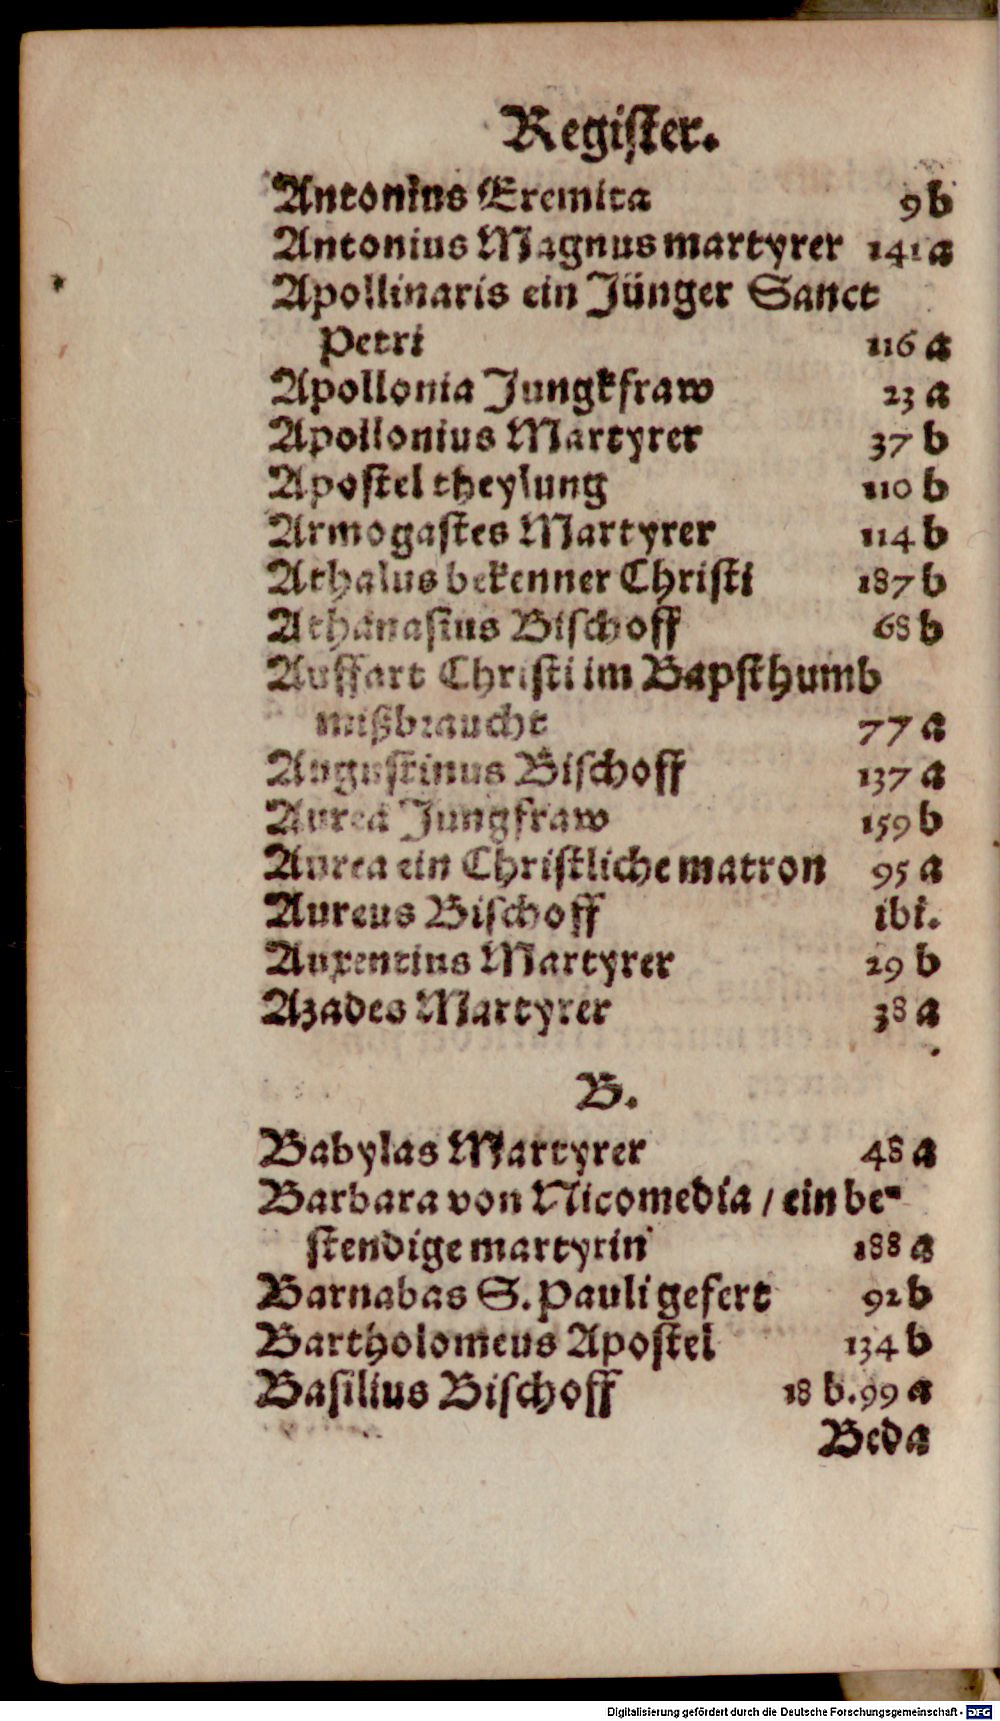 Register.
Antonius Eremita 9 b
Antonius Magnus martyrer 141 a
Apollinaris ein Jünger Sanct
Petri 116 a
Apollonia Jungkfraw 23 a
Apollonius Martyrer 37 b
Apostel theylung 110 b
Armogastes Martyrer 114 b
Athalus bekenner Christi 187 b
Athanasius Bischoff 68 b
Auffart Christi im Bapsthumb
mißbraucht 77 a
Augustinus Bischoff 137 a
Aurea Jungfraw 159 b
Aurea ein Christliche matron 95 a
Aureus Bischoff ibi.
Auxentius Martyrer 29 b
Azades Martyrer 38 a
B.
Babylas Martyrer 48 a
Barbara von Nicomedia / ein be-
stendige martyrin 188 a
Barnabas S. Pauli gefert 92 b
Bartholomeus Apostel 134 b
Basilius Bischoff 18 b. 99 a
Beda
Digitalisierung gefördert durch die Deutsche Forschungsgemeinschaft - DFG